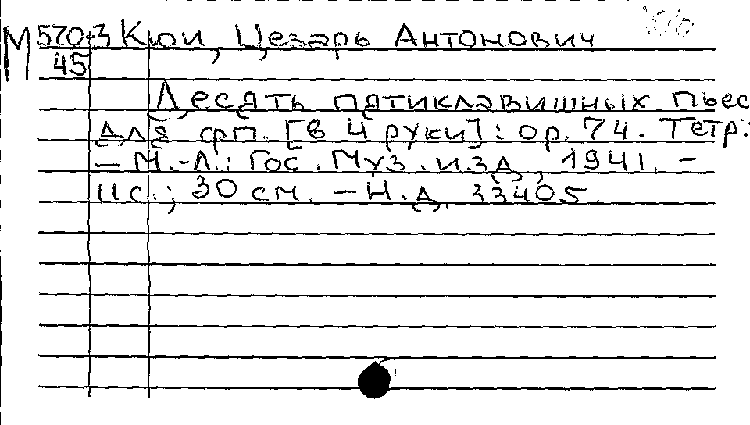 М 570-3 Кюи, Цезарь Антонович
45
Десять пятиклавишных пьес
для фп. [в 4 руки]: ор. 74. Тетр:
– М.-Л.: Гос. Муз. изд, 1941. –
11с.; 30 см. – Н.д. 33405